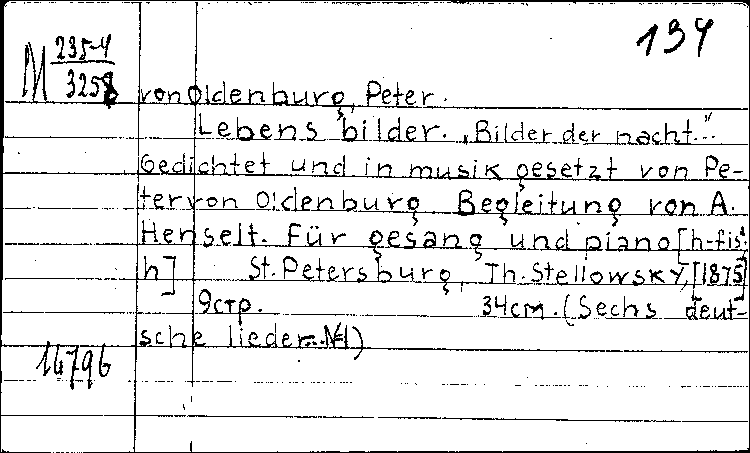 134
M 235-4
3258
von Oldenburg, Peter.
Lebens bilder. „Bilder der nacht..."
Gedichtet und in musik gesetzt von Pe-
ter von Oldenburg. Begleitung von A.
Henselt. Für gesang und piano [h-fis²-
h] St. Petersburg, Th. Stellowsky, [1875]
9стр. 34см. (Sechs deut-
sche lieder... №1)
16796